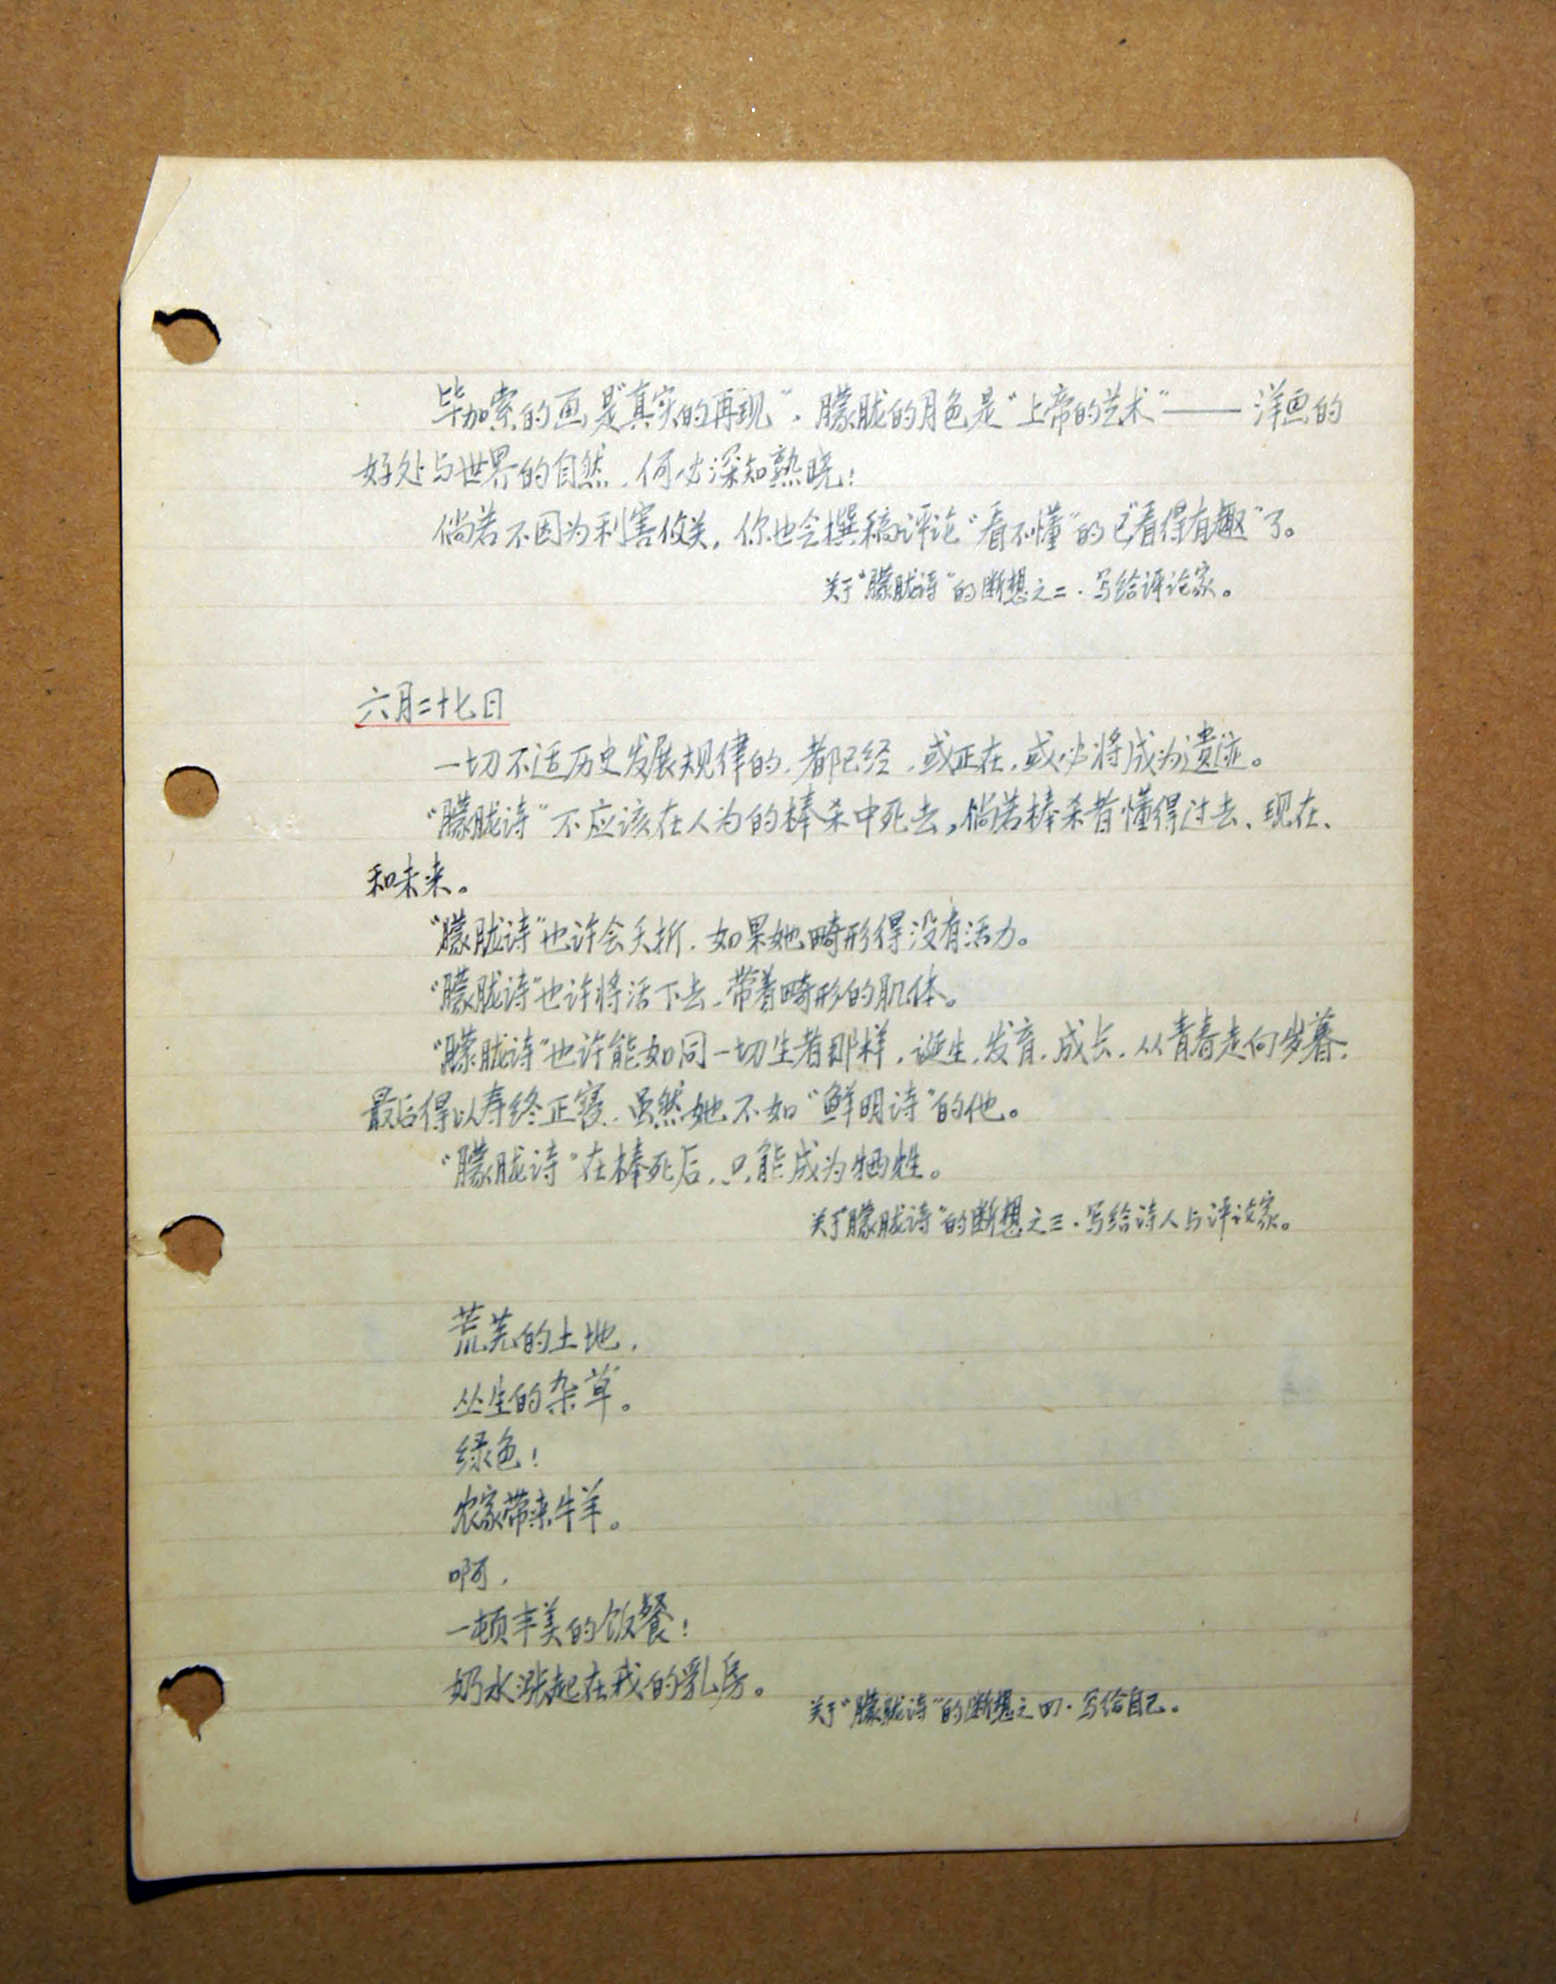 毕加索的画是“真实的再现”，朦胧的月色是“上帝的艺术”——洋画的
好处与世界的自然，何必深知熟晓！
倘若不因为利害攸关，你也会撰稿评论“看不懂”的已“看得有趣”了。
关于“朦胧诗”的断想之二·写给评论家。
六月二十七日
一切不适历史发展规律的，都已经，或正在，或必将成为遗迹。
“朦胧诗”不应该在人为的棒杀中死去，倘若棒杀者懂得过去、现在、
和未来。
“朦胧诗”也许会夭折，如果她畸形得没有活力。
“朦胧诗”也许将活下去，带着畸形的肌体。
“朦胧诗”也许能如同一切生者那样，诞生，发育，成长，从青春走向岁暮，
最后得以寿终正寝，虽然她不如“鲜明诗”的他。
“朦胧诗”在棒死后，只能成为牺牲。
关于“朦胧诗”的断想之三·写给诗人与评论家。
荒芜的土地，
丛生的杂草。
绿色！
农家带来牛羊。
啊，
一顿丰美的饭餐！
奶水涨起在我的乳房。
关于“朦胧诗”的断想之四·写给自己。